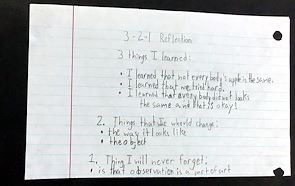 3-2-1 Reflection
3 things I learned:
• I learned that not every body's apple is the same.
• I learned that we tried hard.
• I learned that every body did not looks
the same and that is okay!
2. Things that I would change:
• the way it looks like
• the object
1. Thing I will never forget.
• is that observation is a part of art